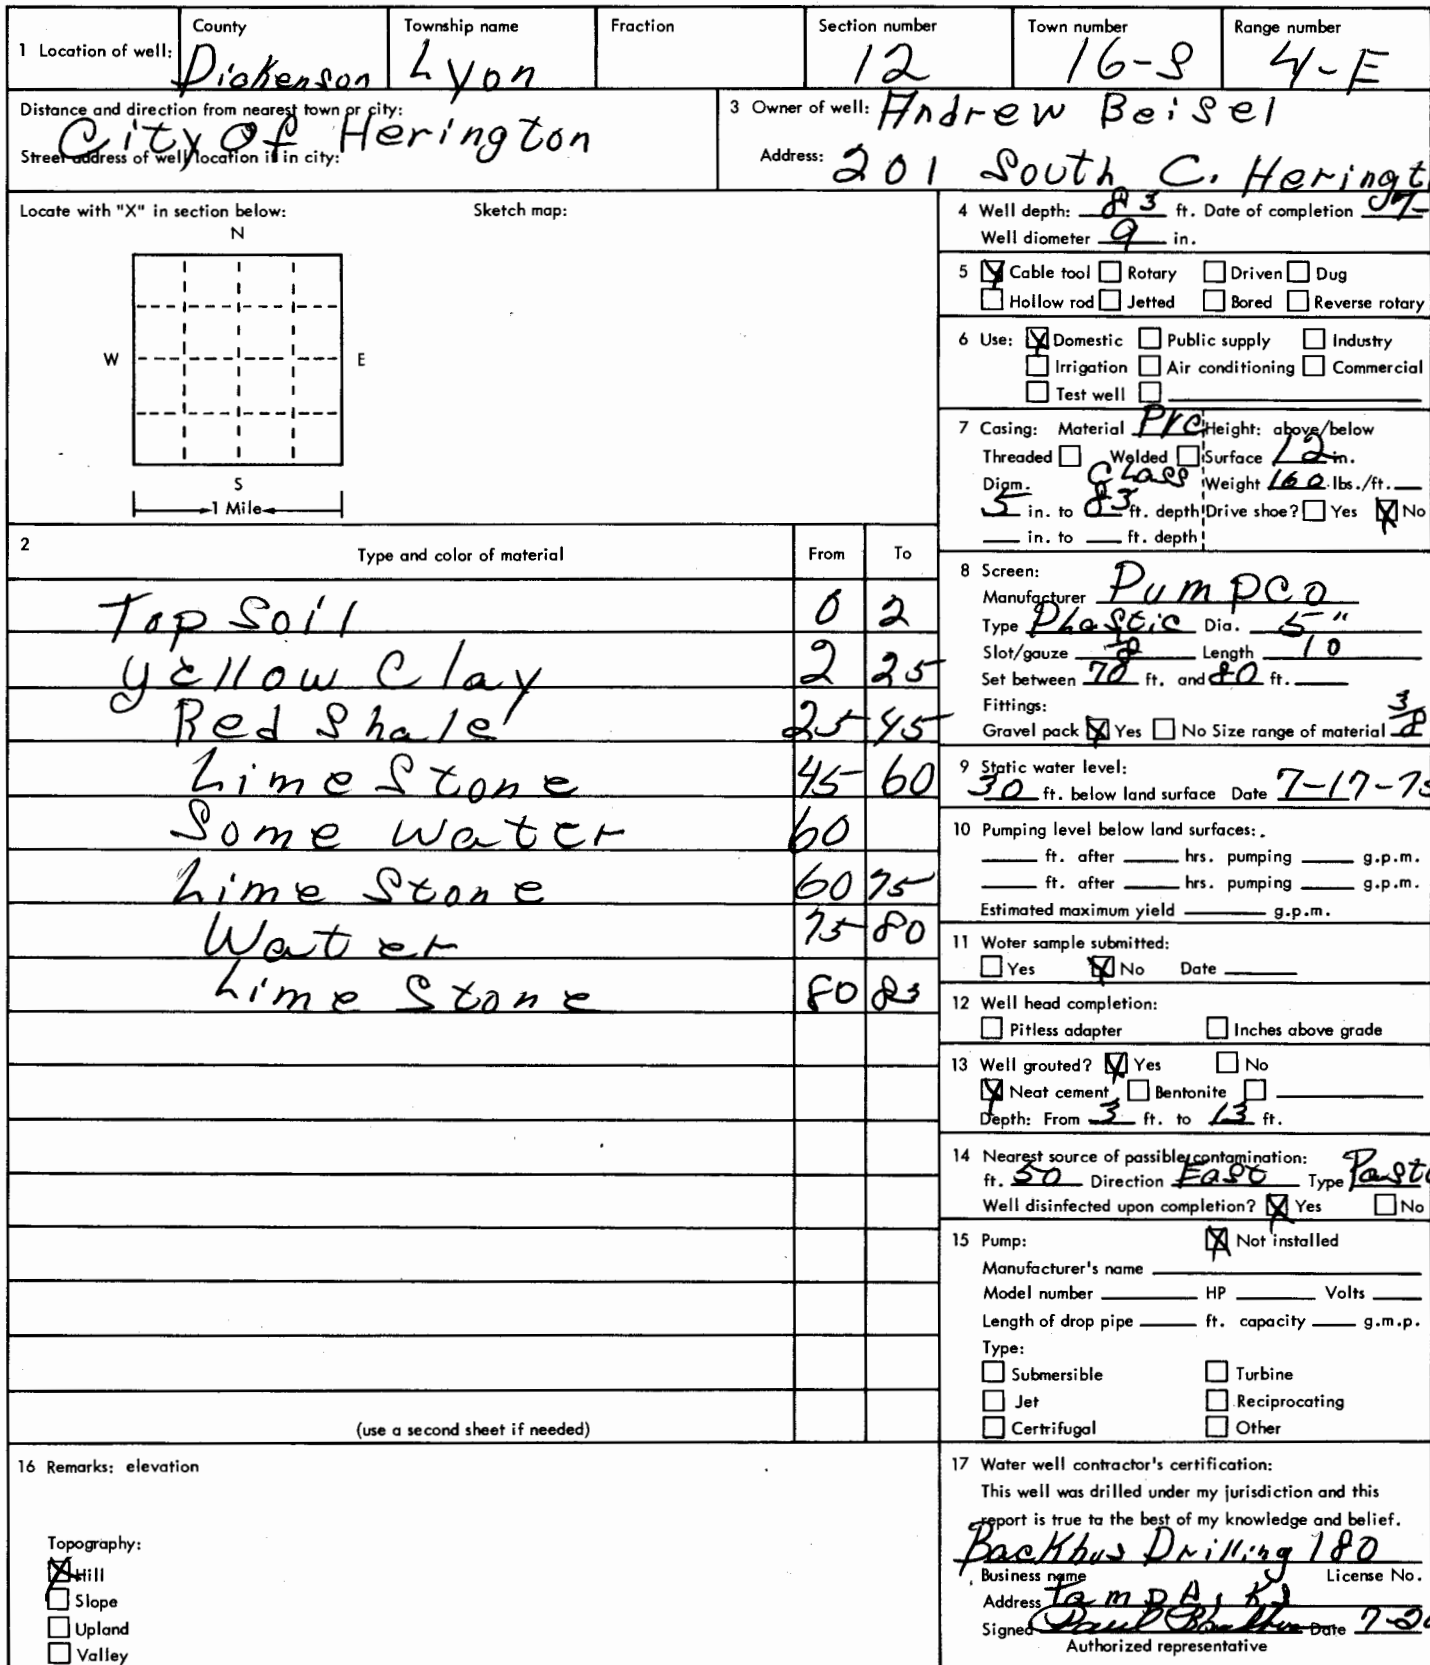 1 Location of well: County Township name Fraction Section number Town number Range number
Dickenson Lyon 12 16-S 4-E
Distance and direction from nearest town or city:
City Of Herington
Street address of well location if in city:
3 Owner of well: Andrew Beisel
Address: 201 South C. Heringt
Locate with "X" in section below: Sketch map:
N
W E
S
1 Mile
2 Type and color of material From To
Top Soil 0 2
Yellow Clay 2 25
Red Shale 25 45
Lime Stone 45 60
Some Water 60
Lime Stone 60 75
Water 75 80
Lime Stone 80 83
(use a second sheet if needed)
4 Well depth: 83 ft. Date of completion
Well diameter 9 in.
5 Cable tool Rotary Driven Dug
Hollow rod Jetted Bored Reverse rotary
6 Use: Domestic Public supply Industry
Irrigation Air conditioning Commercial
Test well
7 Casing: Material PVC Height: above/below
Threaded Welded Surface 12 in.
Diam. Class Weight 160 lbs./ft.
5 in. to 83 ft. depth Drive shoe? Yes No
in. to ft. depth
8 Screen:
Manufacturer Pumpco
Type Plastic Dia. 5"
Slot/gauze Length 10
Set between 70 ft. and 80 ft.
Fittings:
Gravel pack Yes No Size range of material 3/8
9 Static water level:
30 ft. below land surface Date 7-17-75
10 Pumping level below land surfaces:
ft. after hrs. pumping g.p.m.
ft. after hrs. pumping g.p.m.
Estimated maximum yield g.p.m.
11 Water sample submitted:
Yes No Date
12 Well head completion:
Pitless adapter Inches above grade
13 Well grouted? Yes No
Neat cement Bentonite
Depth: From 3 ft. to 13 ft.
14 Nearest source of possible contamination:
ft. 50 Direction East Type Past
Well disinfected upon completion? Yes No
15 Pump: Not installed
Manufacturer's name
Model number HP Volts
Length of drop pipe ft. capacity g.m.p.
Type:
Submersible Turbine
Jet Reciprocating
Certrifugal Other
16 Remarks: elevation
Topography:
Hill
Slope
Upland
Valley
17 Water well contractor's certification:
This well was drilled under my jurisdiction and this
report is true to the best of my knowledge and belief.
Backhus Drilling 180
Business name License No.
Address Tampa, Ks
Signed Paul Backhus Date 7-2
Authorized representative